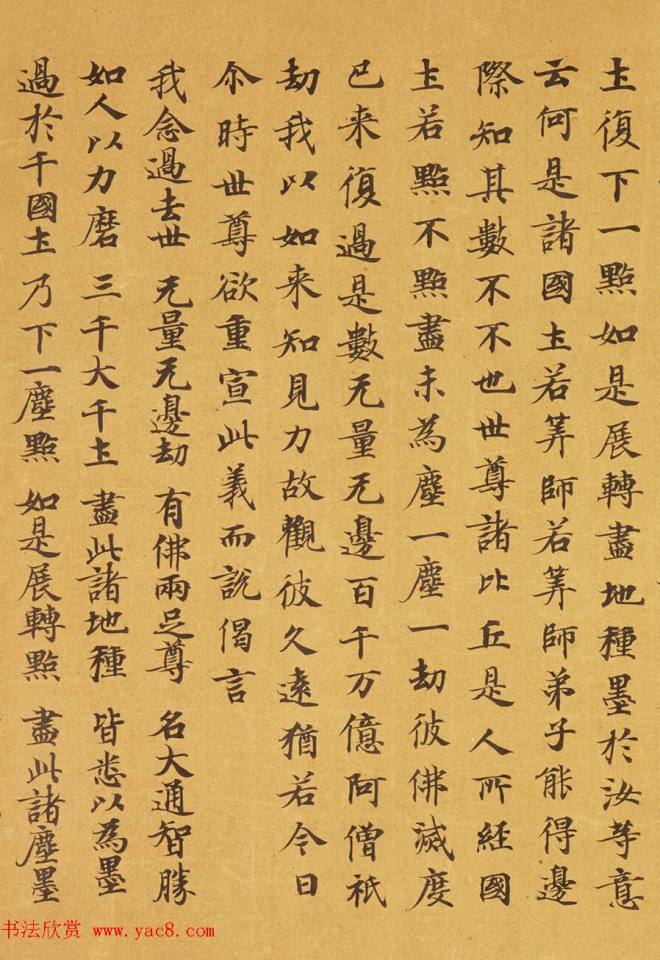 土復下一點如是展轉盡地種墨於汝等意
云何是諸國土若筭師若筭師弟子能得邊
際知其數不不也世尊諸比丘是人所經國
土若點不點盡末為塵一塵一劫彼佛滅度
已来復過是數无量无邊百千万億阿僧祇
劫我以如来知見力故觀彼久遠猶若今日
尒時世尊欲重宣此義而說偈言
我念過去世 无量无邊劫 有佛兩足尊 名大通智勝
如人以力磨 三千大千土 盡此諸地種 皆悉以為墨
過於千國土 乃下一塵點 如是展轉點 盡此諸塵墨
书法欣赏 www.yac8.com